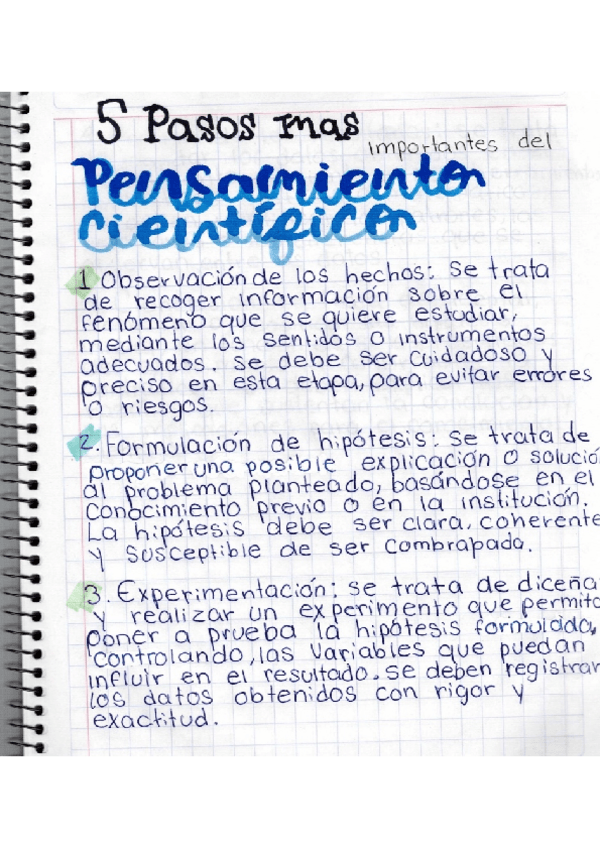 5 Pasos mas
importantes del
Pensamiento
científico
1 Observación de los hechos: Se trata
de recoger información sobre el
fenómeno que se quiere estudiar,
mediante los sentidos o instrumentos
adecuados. Se debe ser cuidadoso y
preciso en esta etapa, para evitar errores
o riesgos.
2. Formulación de hipótesis: Se trata de
proponer una posible explicación o solució
al problema planteado, basándose en el
conocimiento previo o en la institución.
La hipótesis debe ser clara, coherente
y susceptible de ser combrapada.
3. Experimentación: se trata de diceña
y realizar un experimento que permita
poner a prueba la hipótesis formulada,
controlando, las variables que puedan
influir en el resultado. Se deben registrar
los datos obtenidos con rigor y
exactitud.